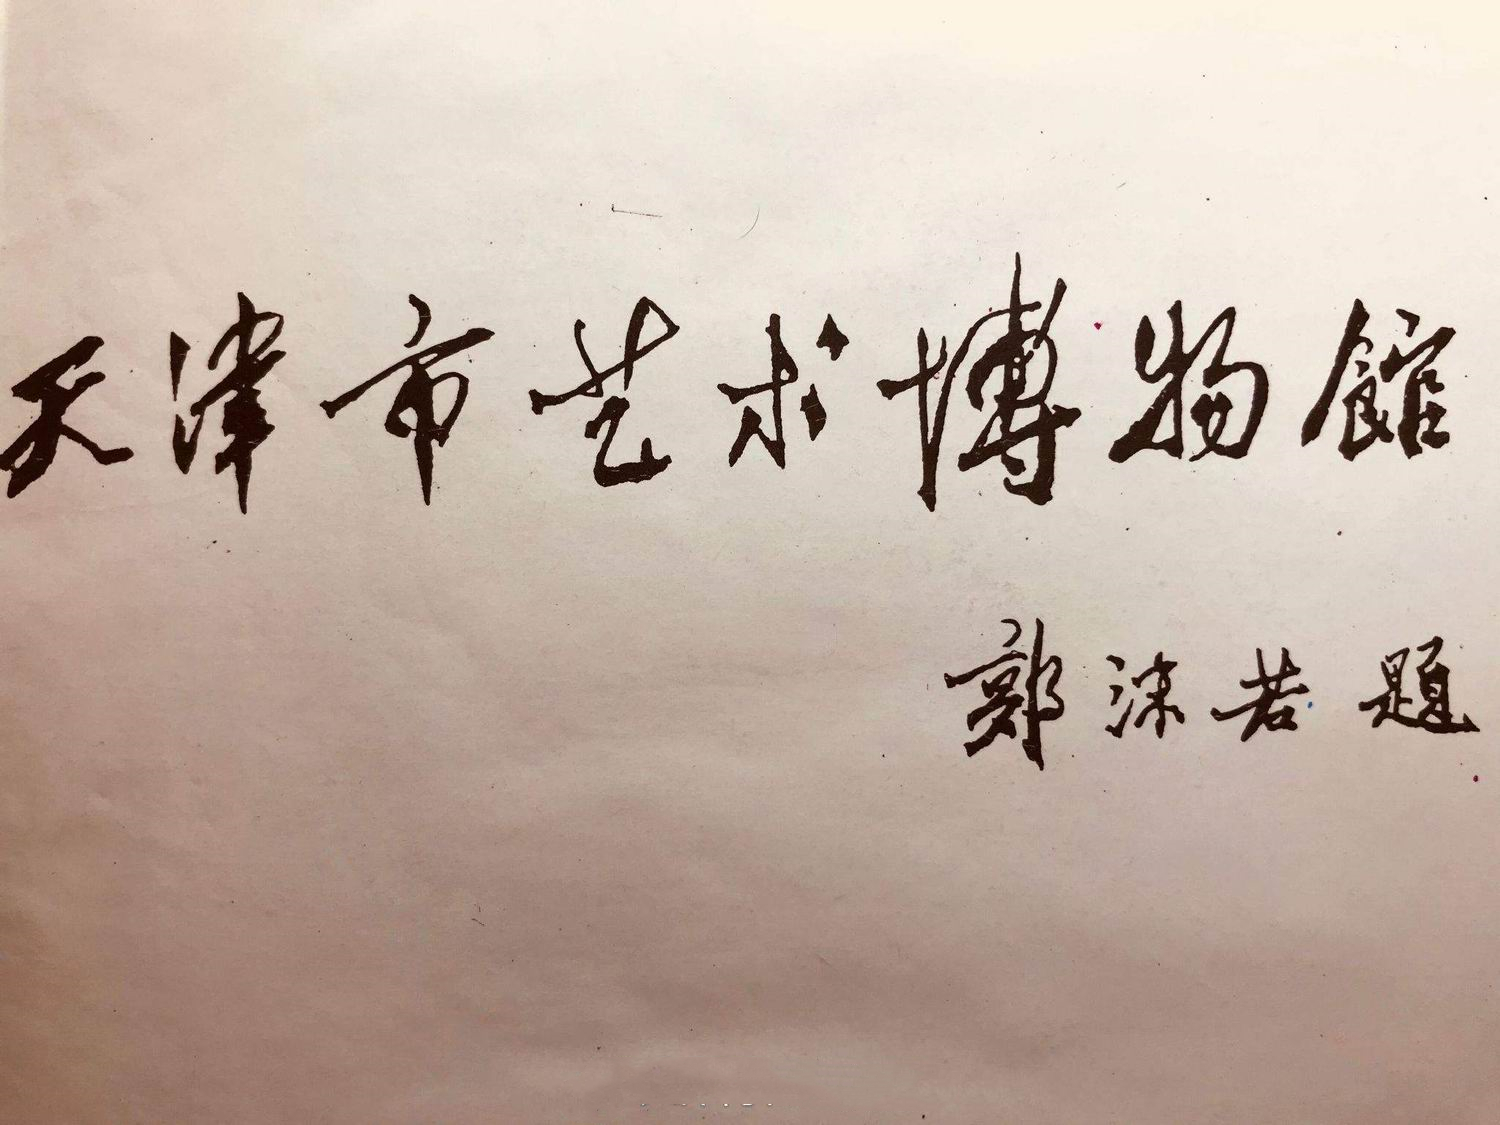 天津市艺术博物館
郭沫若題